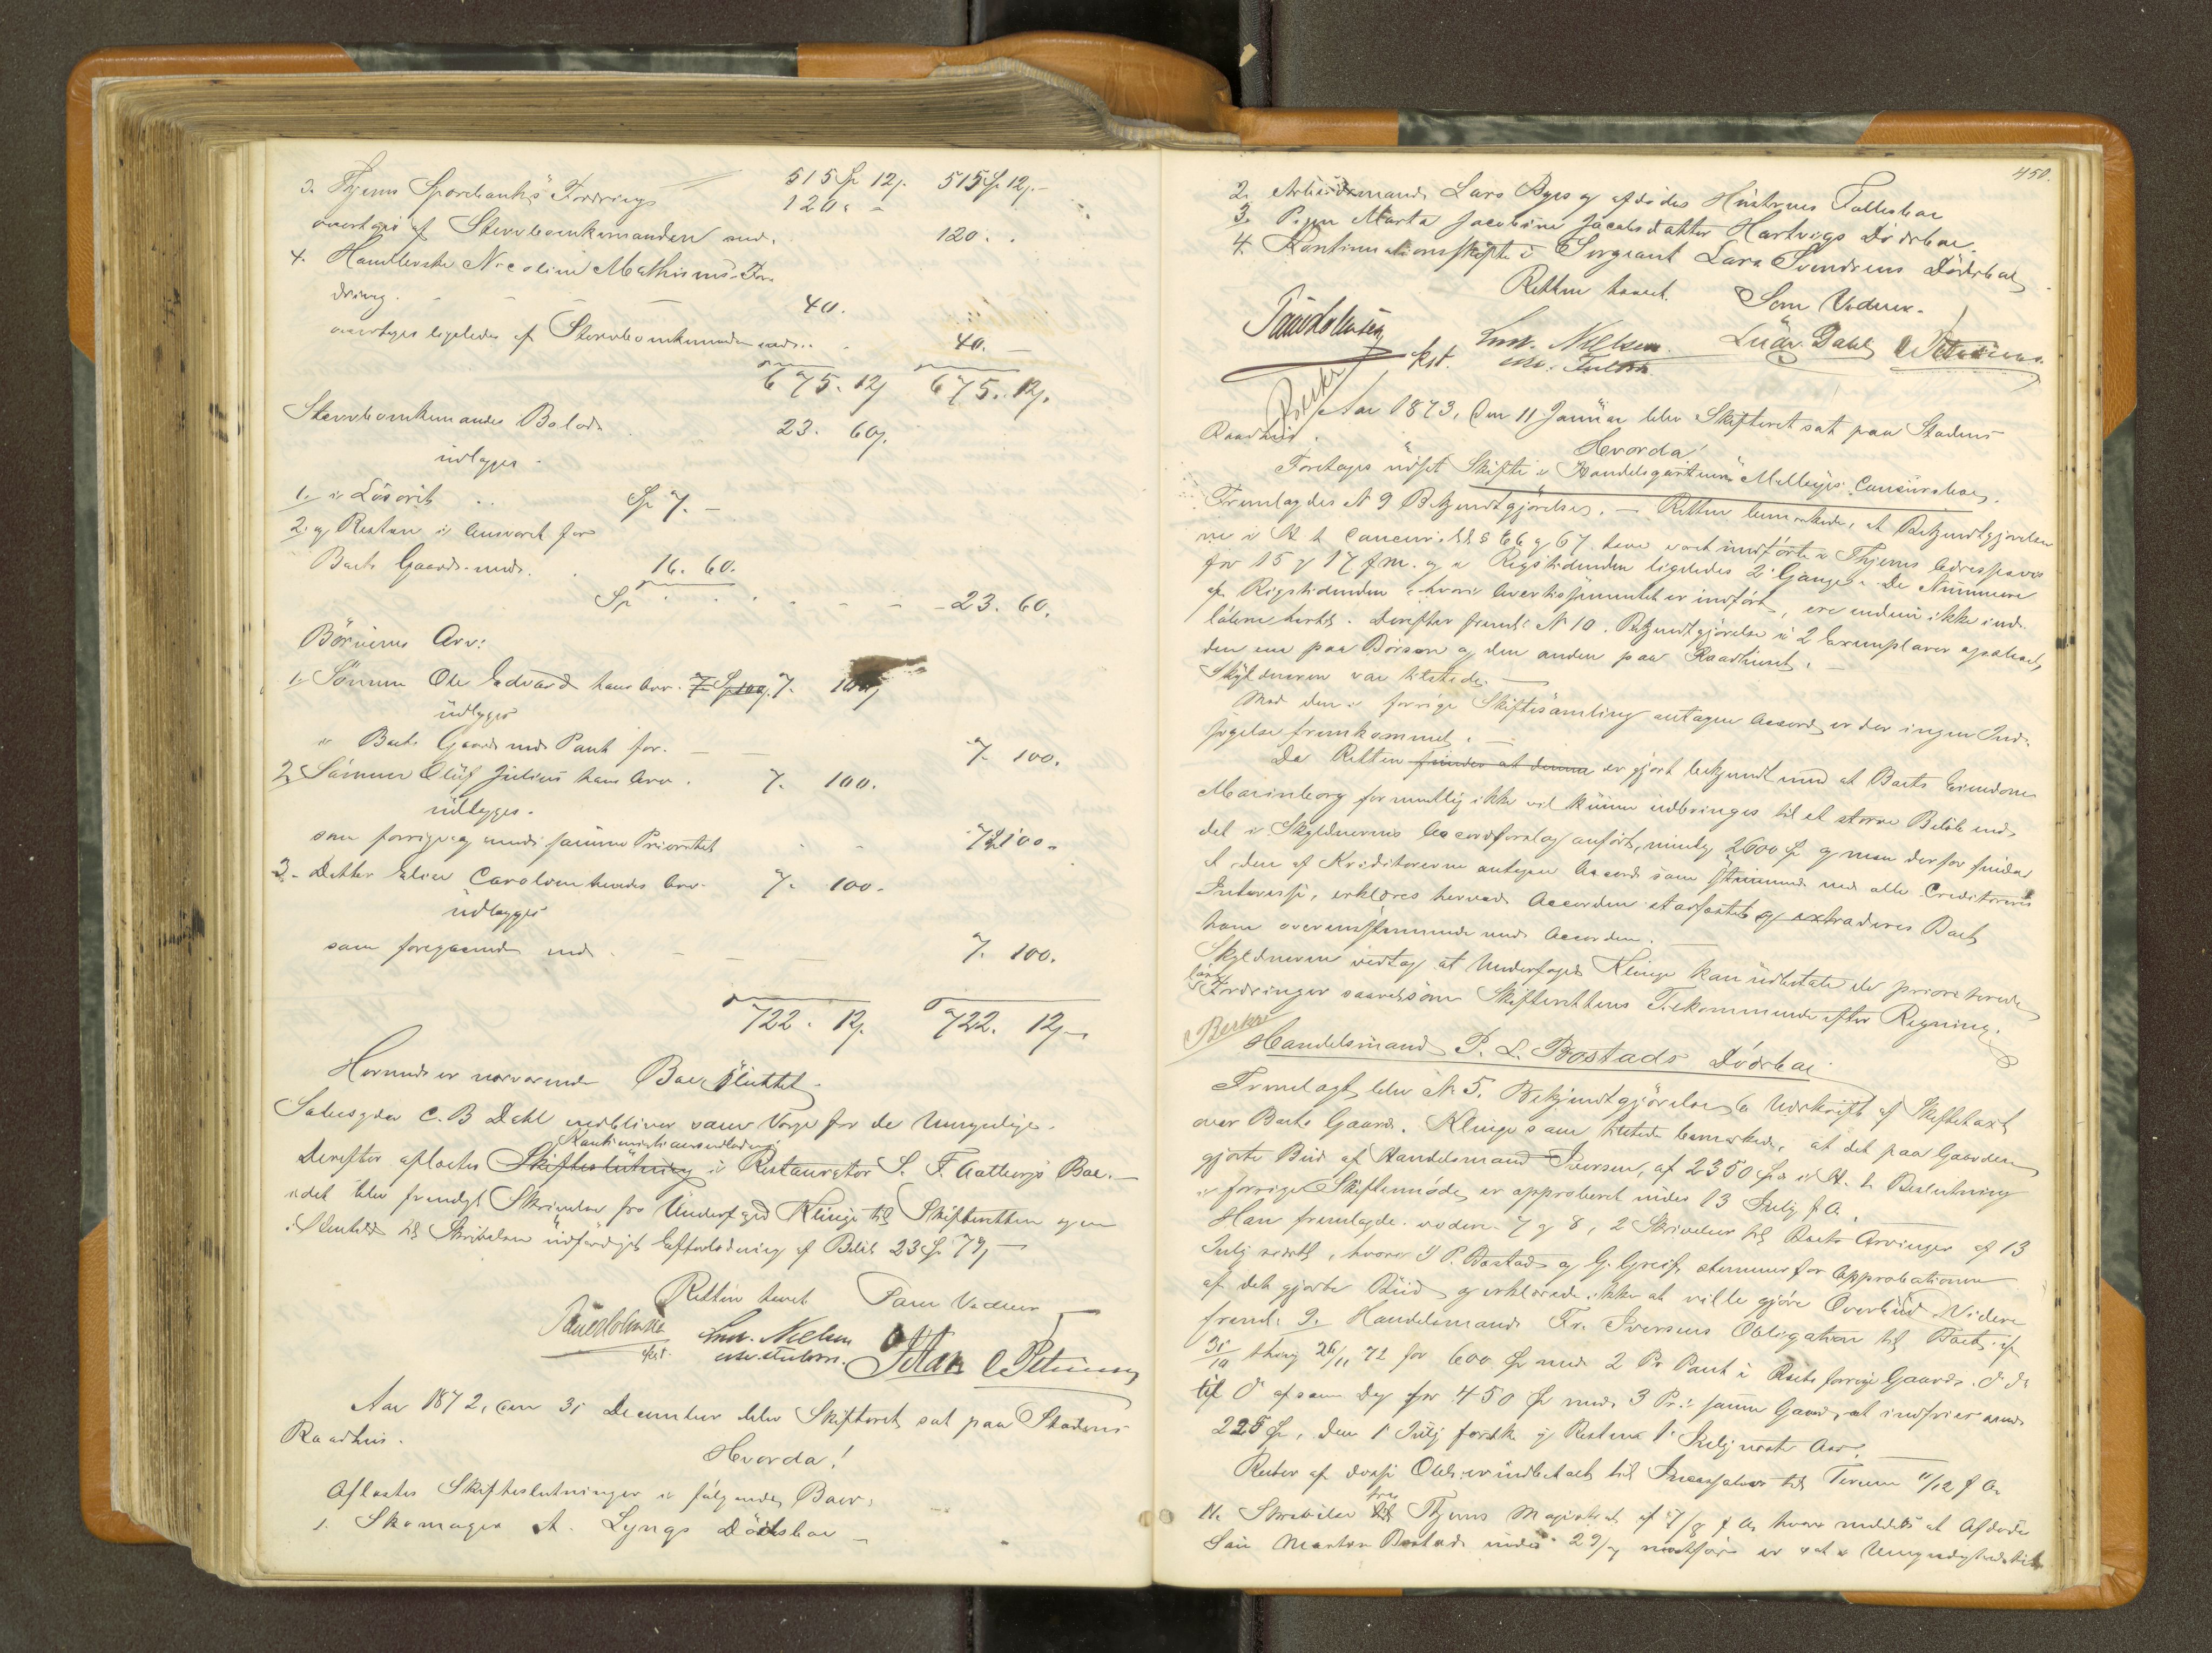 515 Sp 12 s. 515 Sp 12 s.
3. Thjems Sparebanks Fordring 120 " -
overtages af Stervboenkemanden med. 120. .
4. Handlerske Nicoline Mathisens For-
dring. 40.
overtages ligeledes af Stervboenkemanden med.. 40. -
675. 12 s 675. 12 s.
Stervboenkemandens Bolod 23. 60 s.
udlægges.
1. i Lösöre .. Sp 7. -
2. og Resten i Ansvaret for
Boets Gaard med. 16. 60.
Sp - 23. 60.
Börnenes Arv:
1. Sönnen Ole Edvard hans Arv. 7 Sp 100. 7. 100
udlægges
i Boets Gaard med Pant for. 7. 100.
2. Sönnen Oluf Julius hans Arv. 7. 100.
udlægges.
som forrige og med samme Prioritet 7. 100.
3. Datter Eline Caroline hendes Arv. 7. 100.
udlægges
som foregaaende med 7. 100.
722. 12 s. 722. 12 s.
Hermed er nærværende Boe sluttet.
Sadesgder C. B. Dahl vedbliver som Værge for de Umyndige.
Kautionistansvarslodning
Derefter aflæstes Skifteslutning i Restauratör S. F. Aalbergs Boe.
idet blev fremlagt Skrivelse fra Underfoged Klinge til Skifteretten og en
i Henhold til Skrivelsen udfærdiget Efterlodning af Belöb 23 Sp 79 s
Retten hævet Som Vidner
Chr. Nielsen C Petersen
Aar 1872, den 31 December blev Skifteret sat paa Stadens
Raadhus.
Hvorda!
Aflæstes Skifteslutninger i fölgende Boer:
1. Skomager A. Lyngs Dödsboe
450.
2. Arbeidsmand Lars Byes og afdöde Hustrues Fællesboe
3. Pigen Marta Jacobine Jacobsdatter Hartvigs Dödsboe.
4. Kontinuationsskifte i Sergeant Lars Svendsens Dödsboe
Retten hævet. Som Vidner.
Chr. Nielsen Ludv. Dahl C Petersen
kst.
Beskr
Aar 1873, den 11 Januar blev Skifteret sat paa Stadens
Raadhus.
Hvorda!
Foretoges udsat Skifte i Handelsgartner Mellbyes Concursboe.
Fremlagdes N 9 Bekjendtgjörelse. - Retten bemærkede, at Bekjendtgjörelser
ne i H. t. Concurs. L §§ 66 og 67 have været indförte i Thjems Adresseavis
for 15 og 17 f. m. og i Rigstidenden ligeledes 2 Gange. De Nummere
af Rigstidenden hvori Avertissementet er indfört, ere endnu ikke ind-
löbne hertil. Derefter freml. N 10. Bekjendtgjörelse i 2 Exemplarer opslaaet,
den ene paa Börsen og den anden paa Raadhuset.
Skyldneren var tilstede.
Mod den i forrige Skiftesamling antagne Accord er der ingen Ind-
sigelse fremkommet.
Da Retten finder at denne er gjort bekjendt med at Boets Eiendom
Marienborg formentlig ikke vil kunne udbringes til et större Belöb end
det i Skyldnerens Accordforslag anfört, nemlig 2600 Sp og man derfor finder
at den af Kreditorerne antagne Accord som stemmende med alle Creditorers
Interesse, erklæres herved Accorden stadfæstet og extraderes Boet
ham overensstemmende med Accorden.
Skyldneren vedtog at Underfoged Klinge kan udbetale de prioriterede
Fordringer saavelsom Skifterettens Tilkommende efter Regning.
Beskr
Handelsmand P. L. Bostads Dödsboe
Fremlagt blev N 5. Bekjendtgjörelse, 6 Udskrift af Skiftetaxt
over Boets Gaard. Klinge som tilstede bemærkede, at det paa Gaarden
gjorte Bud af Handelsmand Iversen, af 2350 Sp i H. t. Beslutning
i forrige Skiftemöde, er approberet under 13 Julij f. A.
Han fremlagde videre 7 og 8, 2 Skrivelser til Boets Arvinger af 13
Julij sidstl, hvorav I P. Bostad og G. Greif stemmer for Approbationen
af det gjorte Bud og erklærede ikke at ville gjöre Overbud. Videre
freml. 9. Handelsmand Fr. Iversens Obligation til Boet, af
31/10 thing 26/11 72 for 600 Sp med 2 Pr Pant i Boets forrige Gaard. d do
til do af samme Dag for 450 Sp med 3 Pr. i samme Gaard, at indfries med
225 Sp, den 1 Julij förstk og Resten 1 Julij næste Aar.
Renter af disse Obl. er indbetalt til Incassator til Termin 11/12 f. A.
fra
11. Skrivelse til Thjems Magistrat af 7/8 f. A. hvori meddeles at Afdödes
Sön Morten Bostad under 29/7 næstfor er sat i Umyndighedstil-